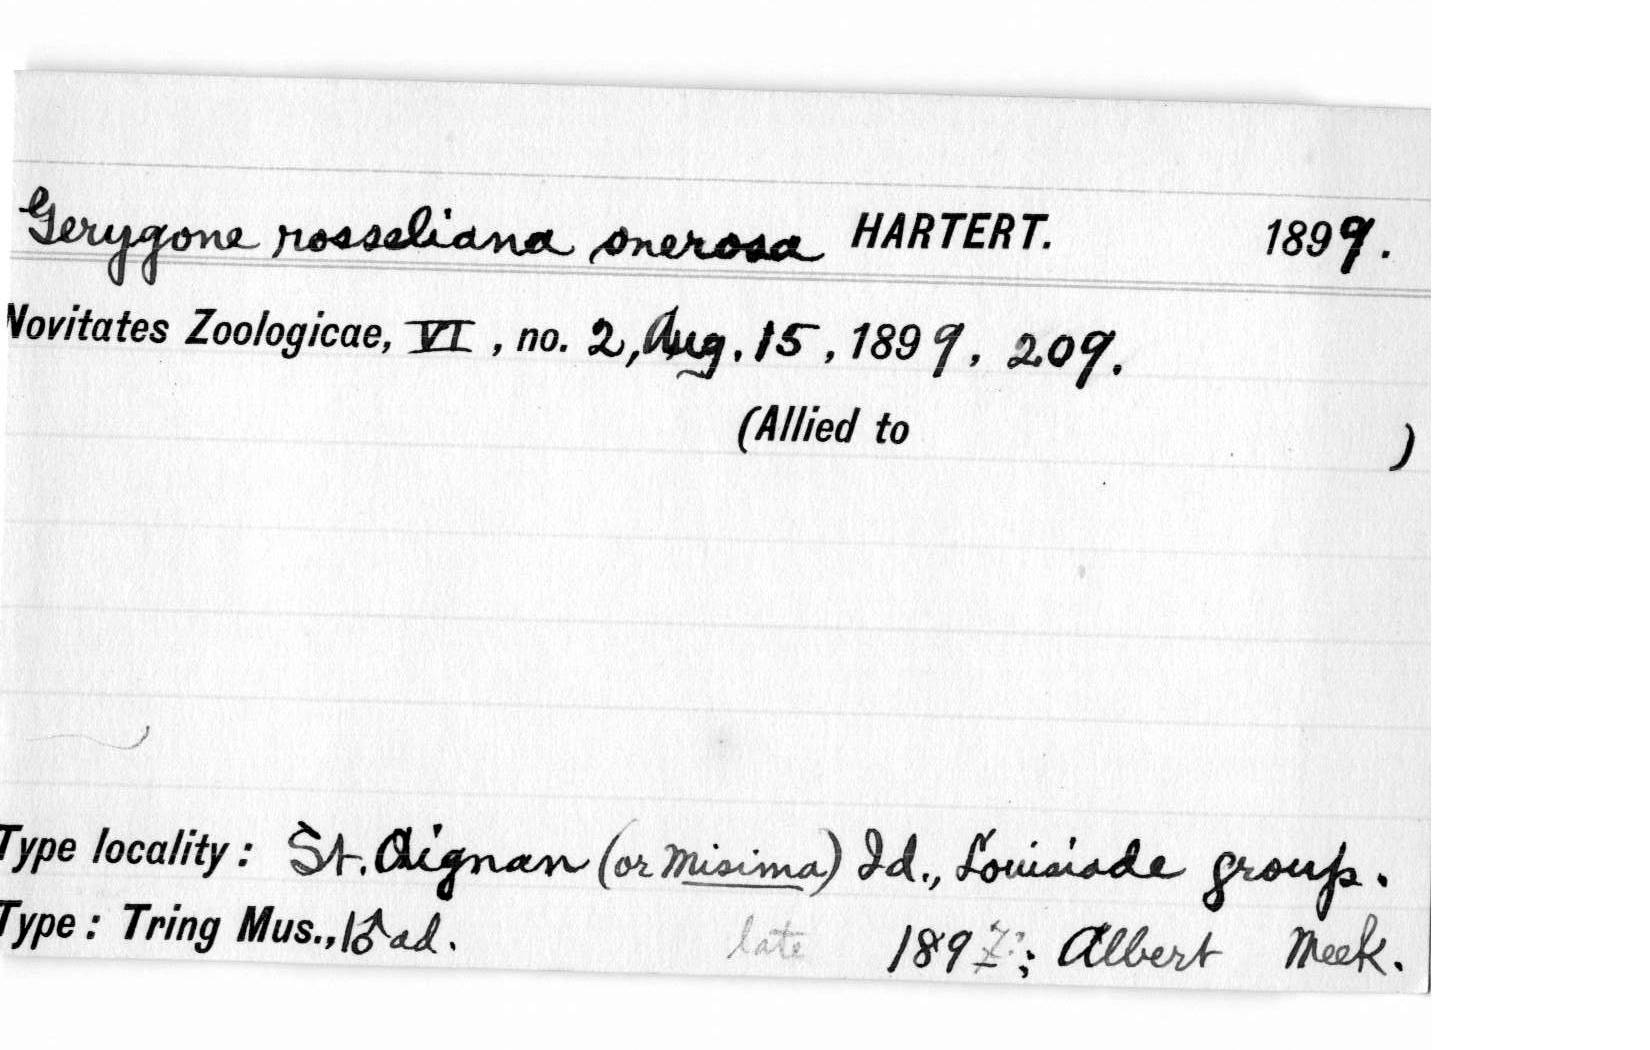 Gerygone rosseliana onerosa HARTERT. 1899.
Novitates Zoologicae, VI, no. 2, Aug. 15, 1899, 209.
(Allied to )
Type locality: St. Aignan (or Misima) Id., Louisiade group.
Type: Tring Mus., 1♂ ad. late 1897?; Albert Meek.